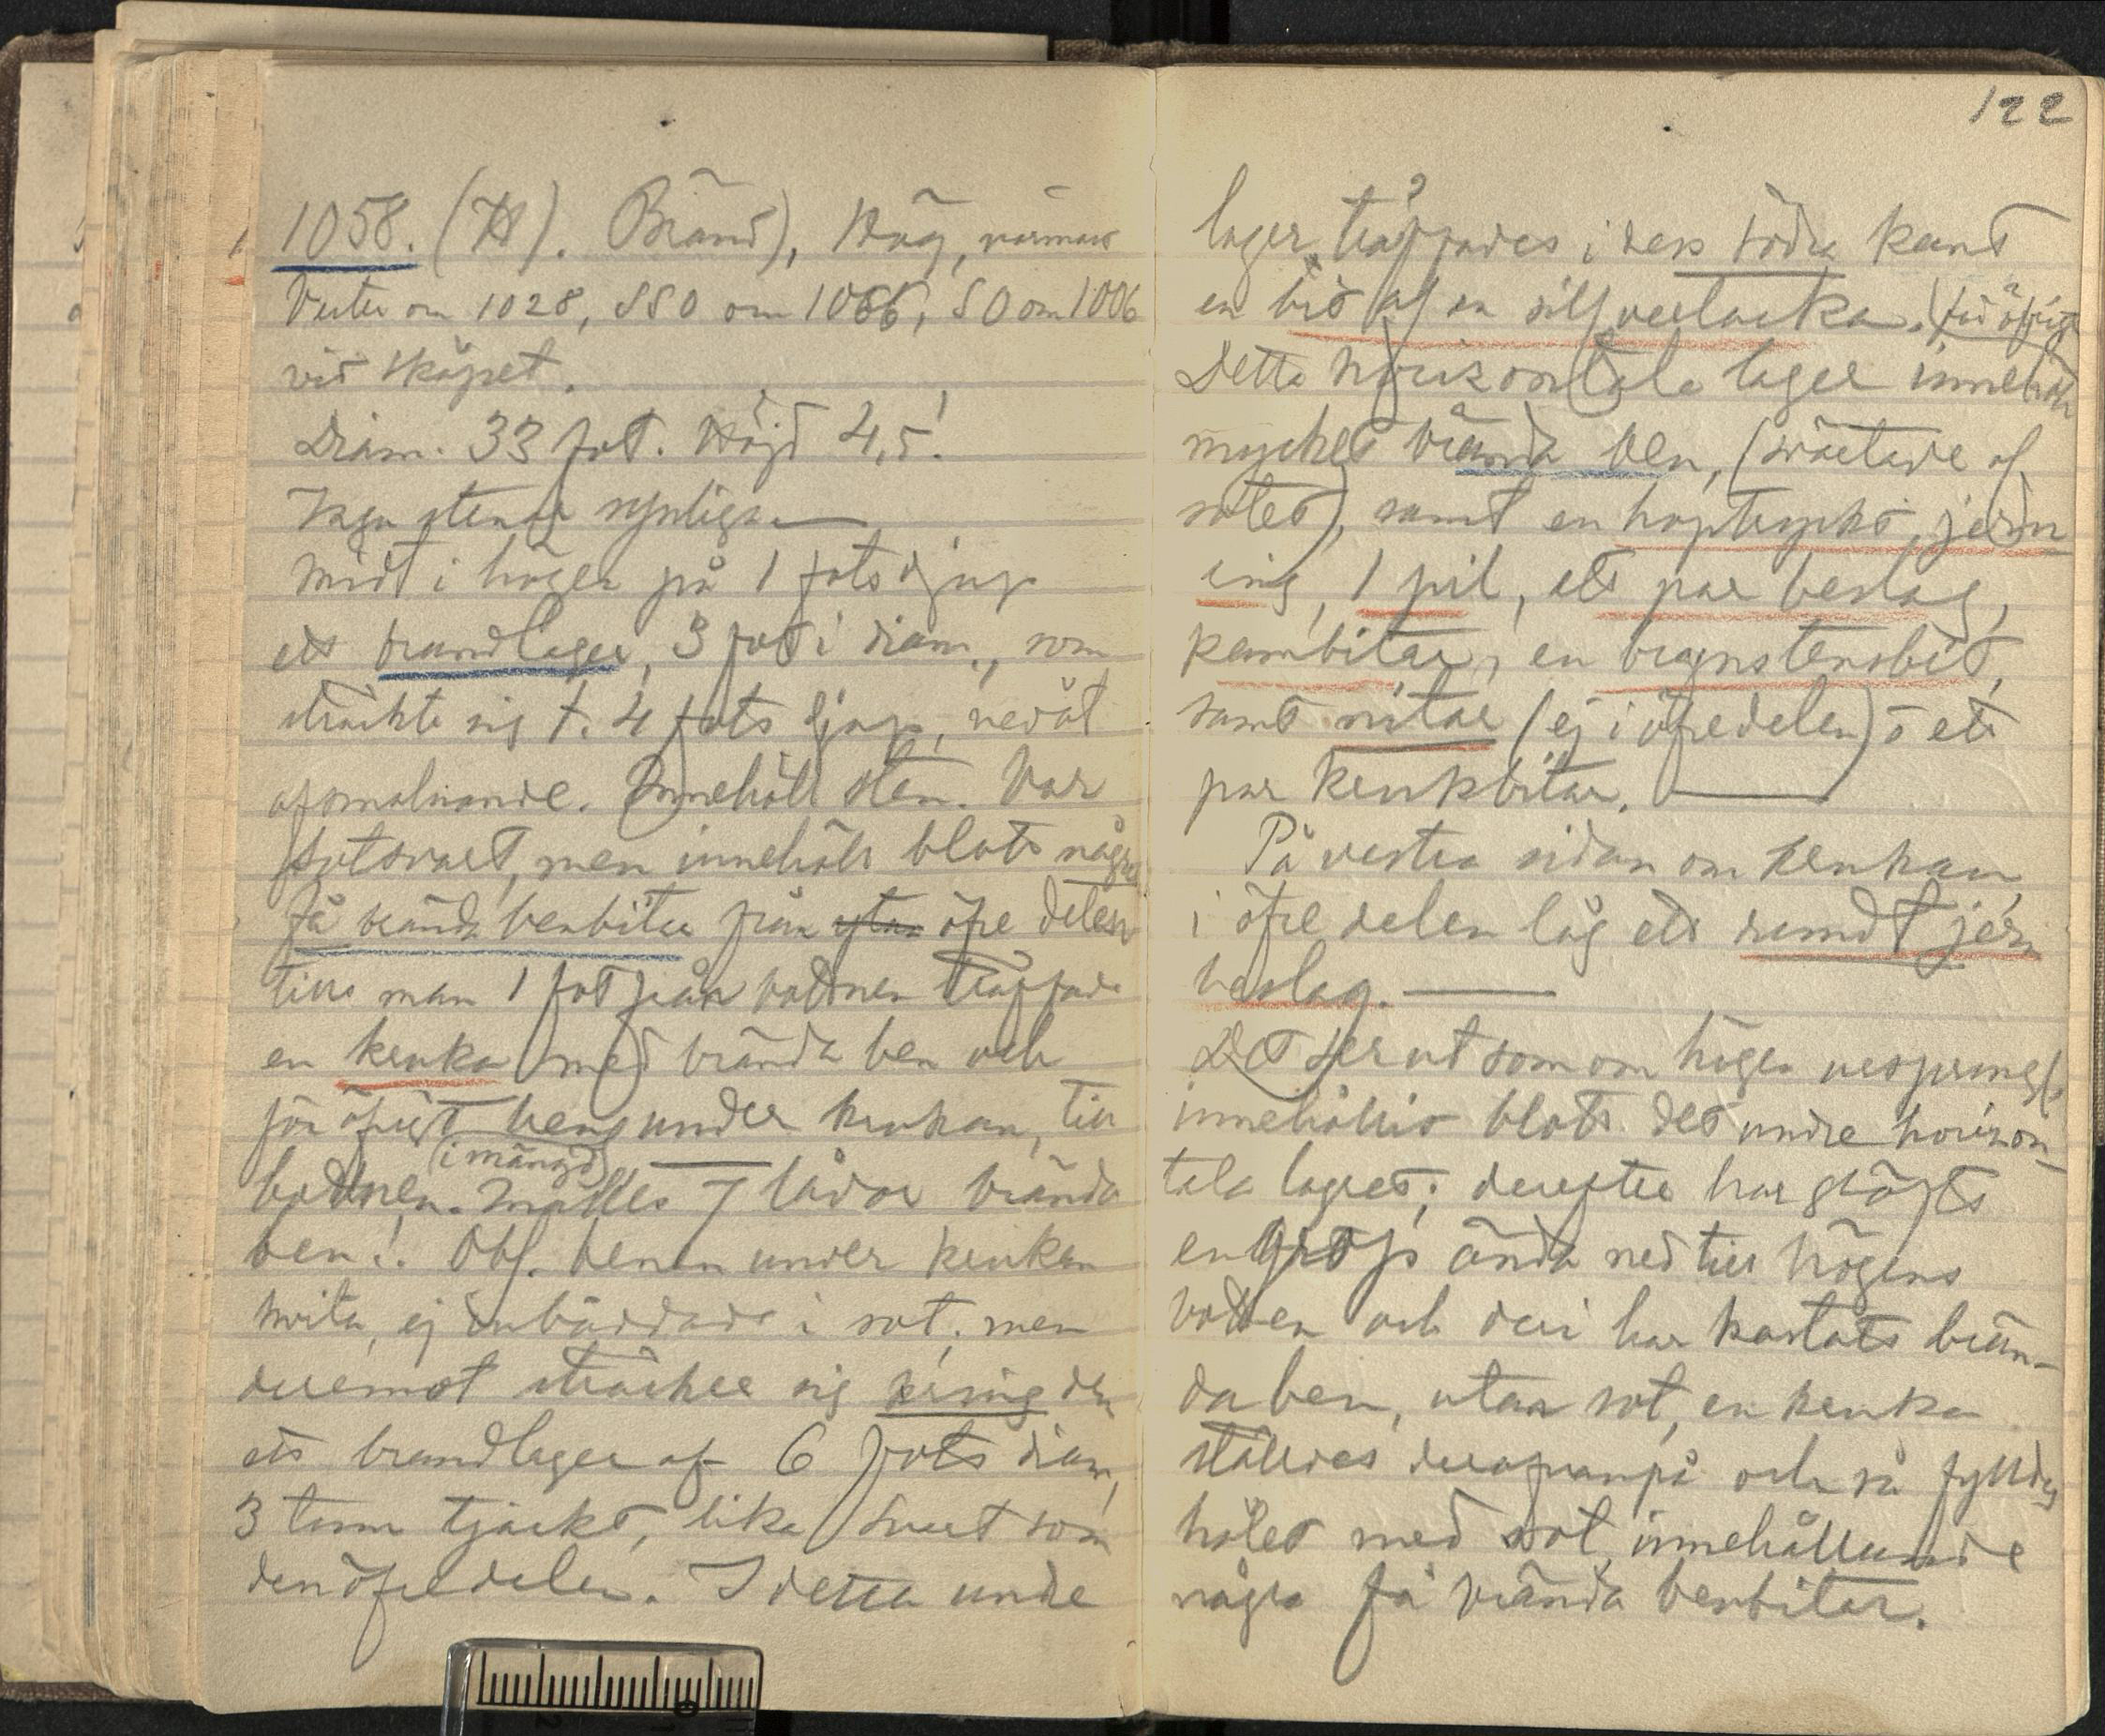 1058. (H). Bränd), Hög, närmast
Vester om 1028, SSO om 1066, SO om 1006
vid skäpet.
Diam. 33 fot. Höjd 4,5!
Inga stenar synliga. —
Midt i högen på 1 fots djup
ett brandlager, 3 fot i diam., som
sträckte sig t. 4 fots djup, nedåt
afsmalnande. Innehöll sten. Var
sotsvart, men innehöll blott några
få brända benbitar från ytan öfre delen
tills man 1 fot från bottnen träffade
en kruka med brända ben och
för öfrigt ben under krukan, till
(i mängd)
bottnen. Mättes 7 lådor brända
ben! Obs. benen under krukan
hvita, ej inbäddade i sot, men
deremot sträcker sig kring den
ett brandlager af 6 fots diam,
3 tum tjockt, lika svart som
den öfre delen. I detta undre
122
lager träffades i dess södra kant
en bit af en silfverlacka.
Detta horizontala lager innehöll
mycket brända ben, (svärtade af
sotet), samt en hoptryckt jern
ring, 1 pil, ett par beslag,
kambitar, en bronstensbit,
samt nitar (ej i öfre delen) o ett
par krukbitar. —
På vestra sidan om krukan,
i öfre delen låg ett rundt jern
beslag. —
Det ser ut som om högen urspringl.
innehållit blott det undre horizon-
tala lagret; derefter har gräfts
en grop ända ned till högens
botten och deri har kastats brän-
da ben, utan sot, en kruka
ställdes derofvanpå och så fylldes
hålet med sot, innehållande
några få brända benbitar.